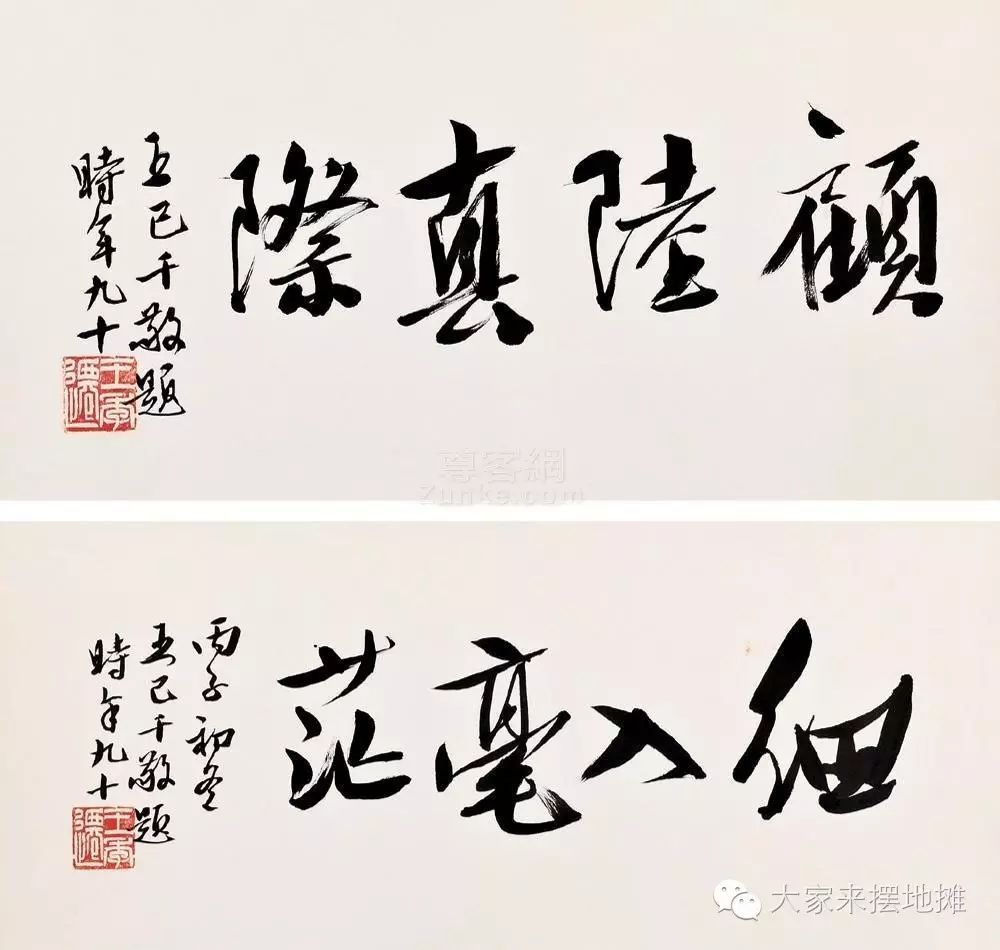 顧陸真際
王己千敬題
時年九十
王季遷
尊客網
Zunke.com
細入毫茫
丙子初冬
王己千敬題
時年九十
王季遷
大家来摆地摊